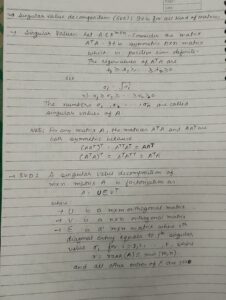 → Singular value decomposition (SVD): It is for all kind of matrices
→ Singular Values: Let A ∈ R^m×n. Consider the matrix
AᵀA. It is symmetric n×n matrix
which is positive semi definite.
The eigenvalues of AᵀA are
λ₁ ≥ λ₂ ≥ ... ≥ λn ≥ 0
Let
σi = √λi
σ₁ ≥ σ₂ ≥ ... ≥ σn ≥ 0
The numbers σ₁, σ₂, ... σn are called
singular values of A
Note: For any matrix A, the matrices AᵀA and AAᵀ are
both symmetric because
(AAᵀ)ᵀ = AᵀᵀAᵀ = AAᵀ
(AᵀA)ᵀ = AᵀAᵀᵀ = AᵀA
→ SVD: A singular value decomposition of
m×n matrix A is factorization
A = UΣVᵀ
where
→ U is a m×m orthogonal matrix
→ V is a n×n orthogonal matrix
→ Σ is a m×n matrix whose ith
diagonal entry equals to ith singular
value σi for i=1,2,..., r where
r = rank(A) ≤ min(m,n)
and all other entries of Σ are zero